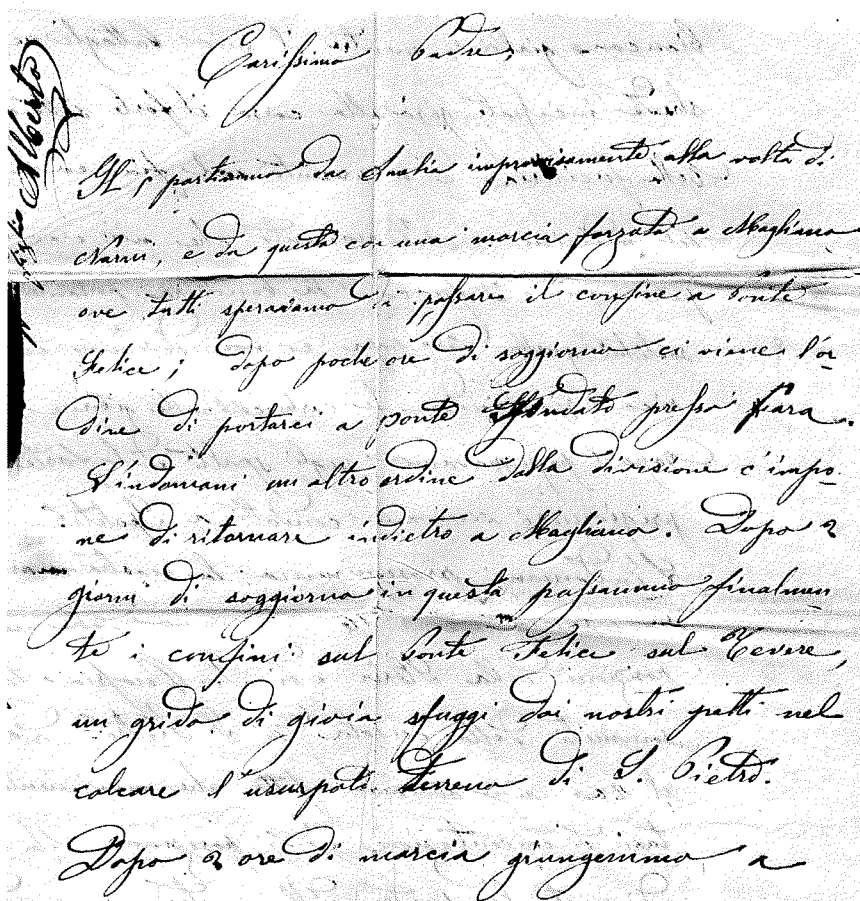 Carissimo Padre,
Il 5 partimmo da Amelia improvvisamente alla volta di
Narni, e da questa con una marcia forzata a Magliano
ove tutti speravamo di passare il confine a Ponte
Felice; dopo poche ore di soggiorno ci viene l'or
dine di portarci a ponte Sfondato presso Fara.
L'indomani un altro ordine dalla divisione c'impo-
ne di ritornare indietro a Magliano. Dopo 2
giorni di soggiorno in questa passammo finalmen
te i confini sul Ponte Felice sul Tevere,
un grido di gioia sfuggi dai nostri petti nel
calcare l'usurpato terreno di S. Pietro.
Dopo 2 ore di marcia giungemmo a
Alberto